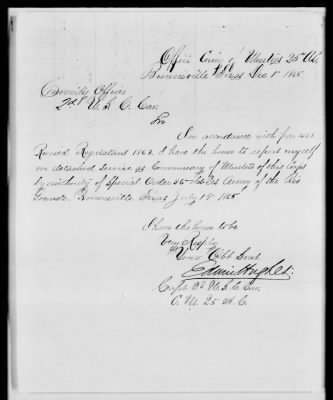 Office Com'y of Musters 25" A.C.
Brownsville Texas Dec 1" 1865
Com'd'g Officer
2nd U.S.C. Cav.
Sir
In accordance with par 468
Revised Regulations 1863, I have the honor to report myself
on detached Service as Commissary of Musters of this Corps
by authority of Special Order 36 Army of the Rio
Grande. Brownsville Texas July 19" 1865
I have the honor to be
Very Resp'ly
Your Obt Servt
Edwin Hughes
Capt 2d U.S.C. Cav.
C. M. 25 A.C.